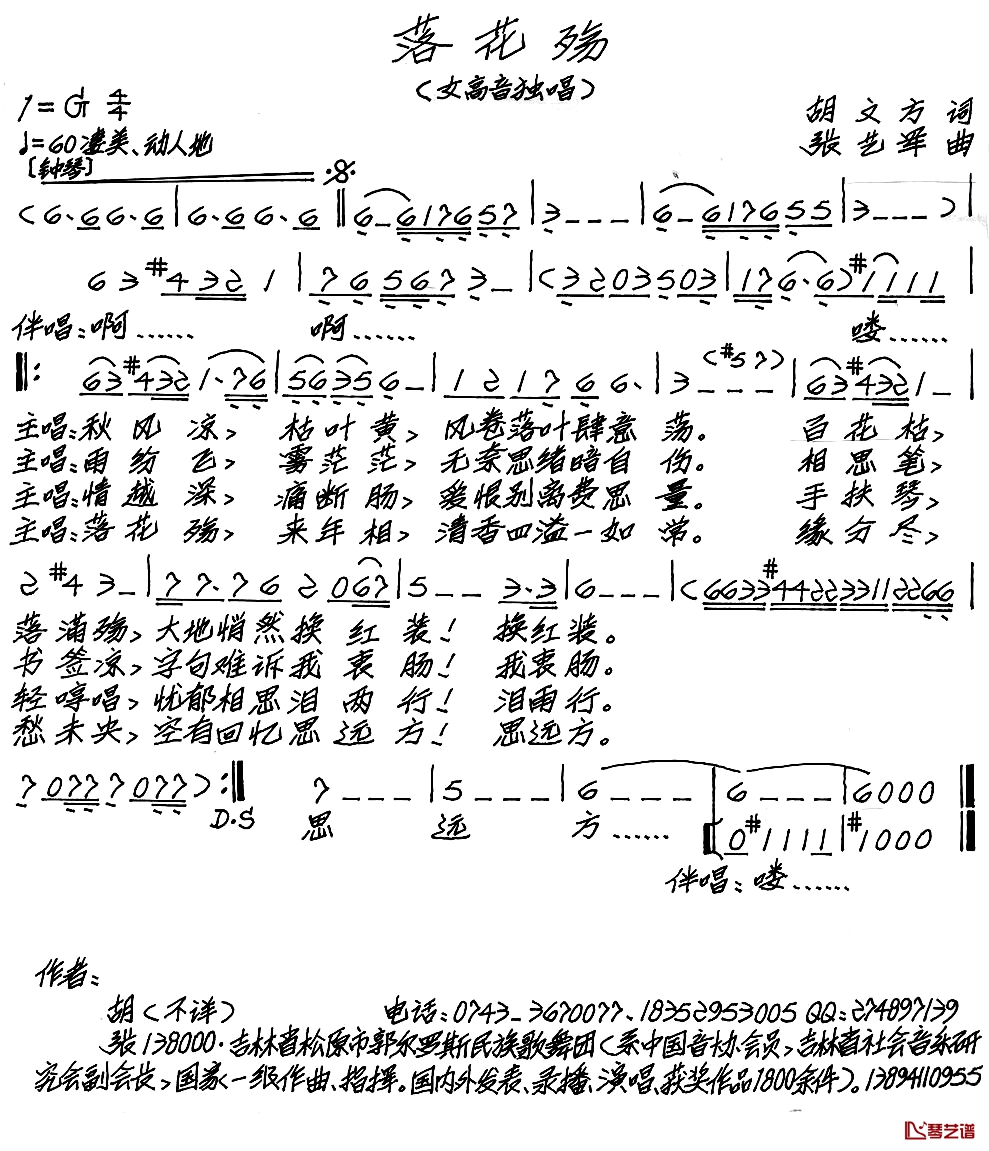 落花殇
（女高音独唱）
1=G 4/4
♩=60 凄美、动人地
胡文方 词
张艺军 曲
[钟琴]
(6·66·6|6·66·6‖6–617657|3–––|6–617655|3–––)|
63#4321|765673–|(3203503|176·6)#1111|
伴唱:啊…… 啊…… 喽……
‖:63#4321·76|56356–|121766·|3–––(#57)|63#4321–|
主唱:秋风凉, 枯叶黄, 风卷落叶肆意荡。 百花枯,
主唱:雨纷飞, 雾茫茫, 无奈思绪暗自伤。 相思笔,
主唱:情越深, 痛断肠, 爱恨别离费思量。 手扶琴,
主唱:落花殇, 来年相, 清香四溢一如常。 缘分尽,
2#43–|77·762067|5––3·3|6–––|(6633#442233112266|
落满殇, 大地悄然换红装! 换红装。
书签凉, 字句难诉我衷肠! 我衷肠。
轻哼唱, 忧郁相思泪两行! 泪雨行。
愁未央, 空有回忆思远方! 思远方。
70777077):‖ 7–––|5–––|6–––|6–––|6000‖
D·S 思 远 方…… 0#1111|#1000
伴唱:喽……
作者:
胡(不详) 电话:0743–3670077、18352953005 QQ:274897139
张138000·吉林省松原市郭尔罗斯民族歌舞团(系中国音协会员,吉林省社会音乐研
究会副会长,国家一级作曲、指挥。国内外发表、录播、演唱、获奖作品1800余件)。13894110955
琴艺谱